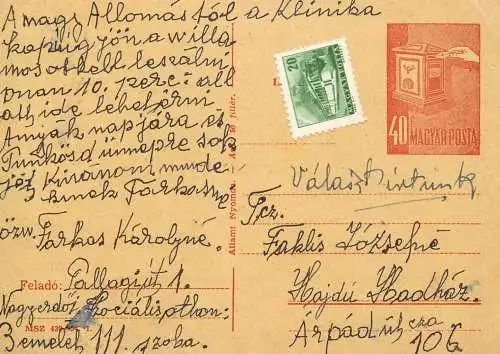 A nagy Állomástól a Klinika
kapuig jön a villa
mosotkell leszálni
onan 10. perc all
att ide lehet érni
Anyák napjára és
Pünkösd ünepre sok
jót kívánom minde
Farkasné
özv. Farkas Károlyné.
Feladó: Pallagiút 1.
Nagyerdői Szociálisotthon.
3 emelet 111. szoba.
MSZ
Állami Nyomda. — Ára 50 fillér.
20
MAGYAR POSTA
40 MAGYAR POSTA
Választ írtunk
Fcz.
Faklis Józsefné
Hajdú Hadház.
Árpád útcza
10